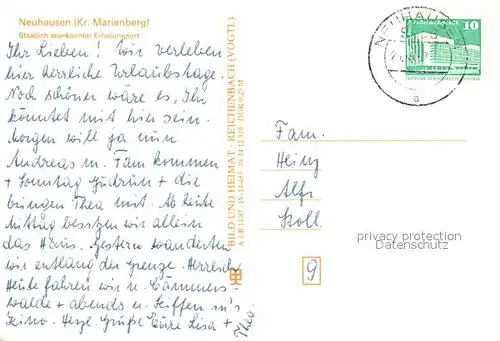 Neuhausen (Kr. Marienberg)
Staatlich anerkannter Erholungsort
Ihr Lieben! Wir verleben
hier herrliche Urlaubstage.
Noch schöner wäre es, Ihr
könntet mit hier sein.
Morgen will ja nun
Andreas m. Fam kommen
+ Sonntag Gudrun + die
bringen Thea mit. Ab heute
Mittag besitzen wir allein
das Haus. Gestern wanderten
wir entlang der Grenze. Herrlich
Heute fahren wir n. Cämmers-
walde + abends n. Seiffen in's
Kino. Herzl. Grüße Eure Lisa +
Theo
BILD UND HEIMAT · REICHENBACH (VOGTL)
NEUHAUSEN
10
a
Fam.
Heinz
privacy protection
Datenschutz
9